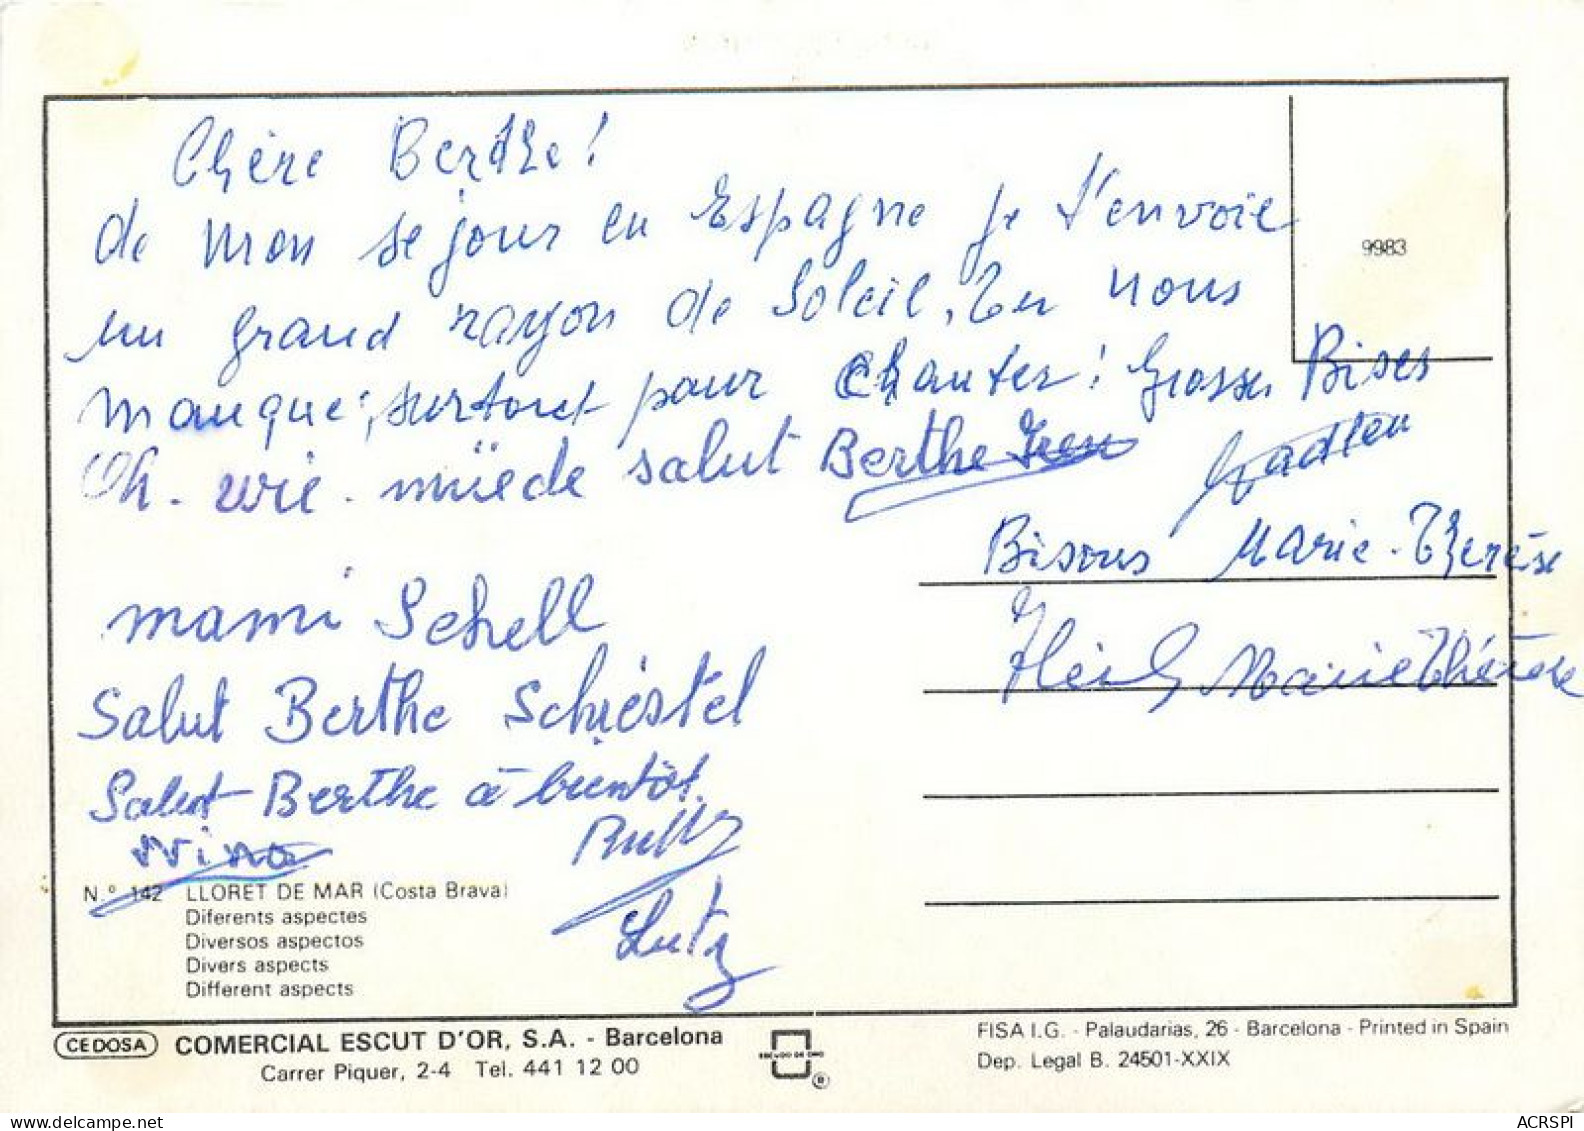 Chère Berthe!
de mon séjour en Espagne je t'envoie
un grand rayon de Soleil. Tu nous
manque, surtout pour chanter! Grosses Bises
Oh. wie. müede salut Berthe
Bisous Marie-Thérèse
mami Schell
Marie Thérèse
Salut Berthe Schiestel
Salut Berthe à bientôt.
Nina
Lutz
9983
N.º 142 LLORET DE MAR (Costa Brava)
Diferents aspectes
Diversos aspectos
Divers aspects
Different aspects
CEDOSA COMERCIAL ESCUT D'OR, S.A. - Barcelona
Carrer Piquer, 2-4 Tel. 441 12 00
ESCUDO DE ORO ®
FISA I.G. - Palaudarias, 26 - Barcelona - Printed in Spain
Dep. Legal B. 24501-XXIX
ACRSPI